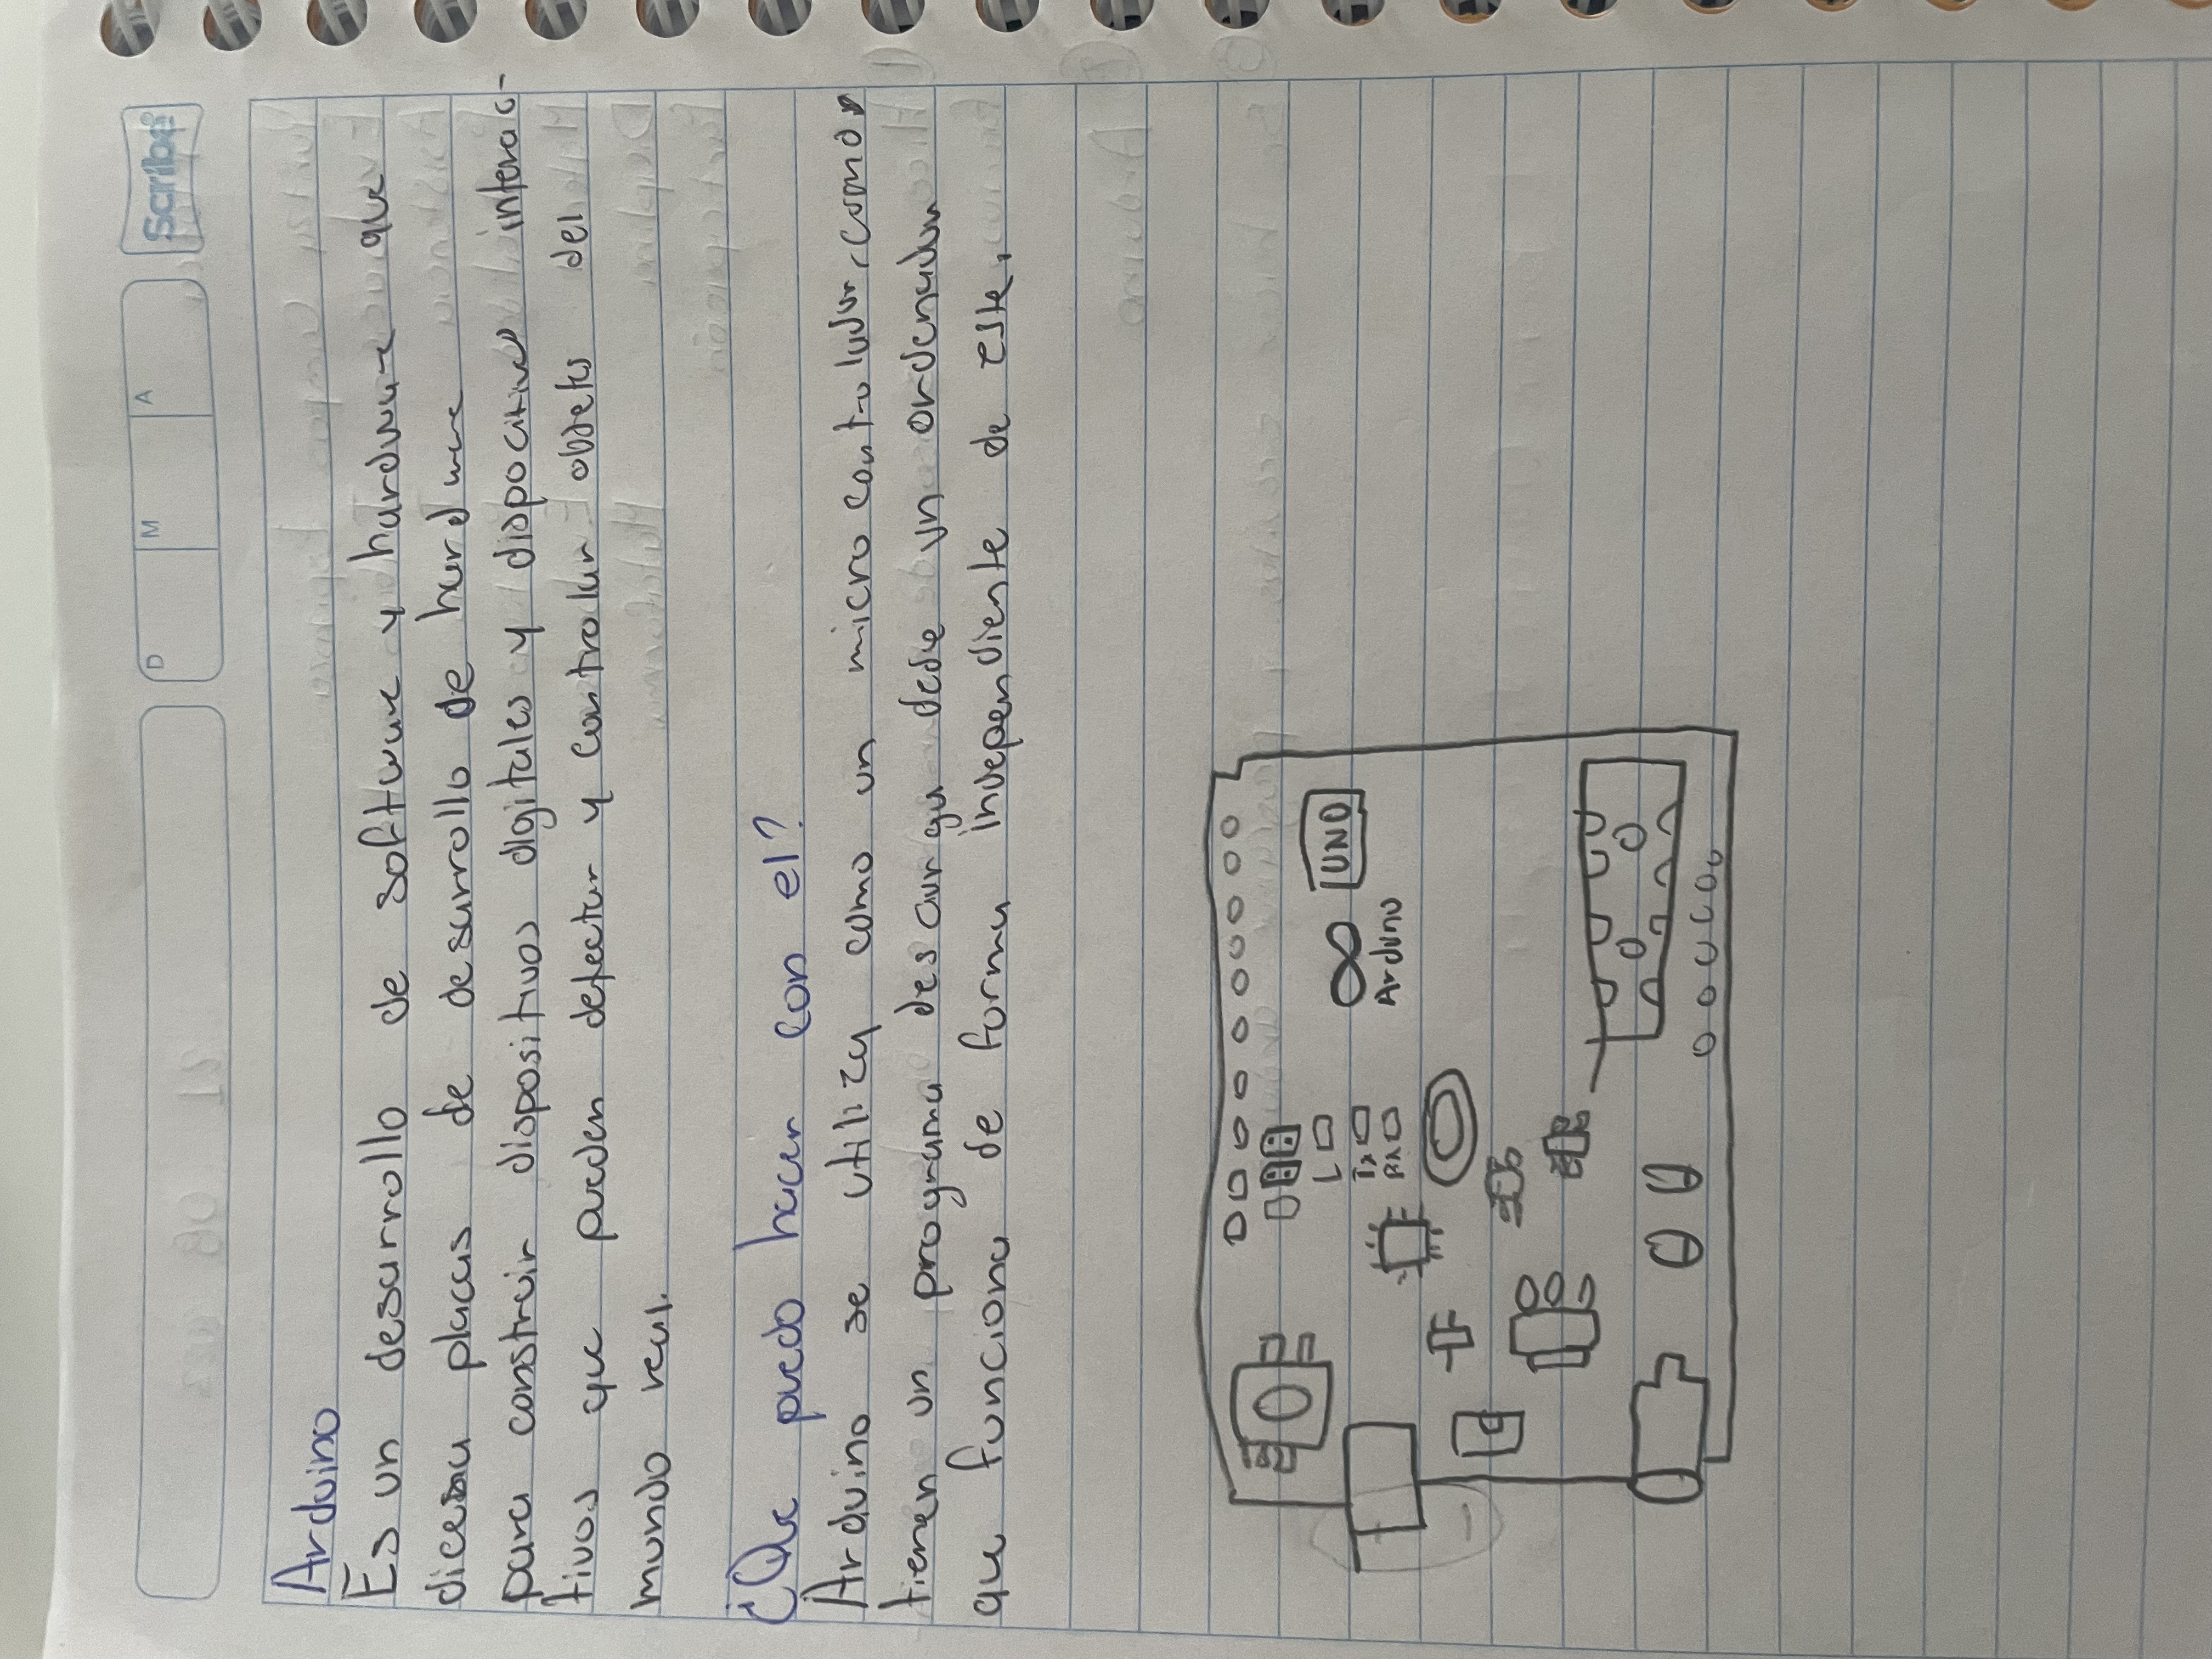 Scribe
D M A
Arduino
Es un desarrollo de software y hardware que
diceñau placas de desarrollo de hardware
para construir dispositivos digitales y dispocitivos interac-
tivos que pueden detectar y controlar objetos del
mundo real.
¿Que puedo hacer con el?
Arduino se utiliza como un micro controlador, cuando
tienen un programa descargu desde un ordenador
que funciona de forma independiente de este.
UNO
Arduino
L
TX
RX